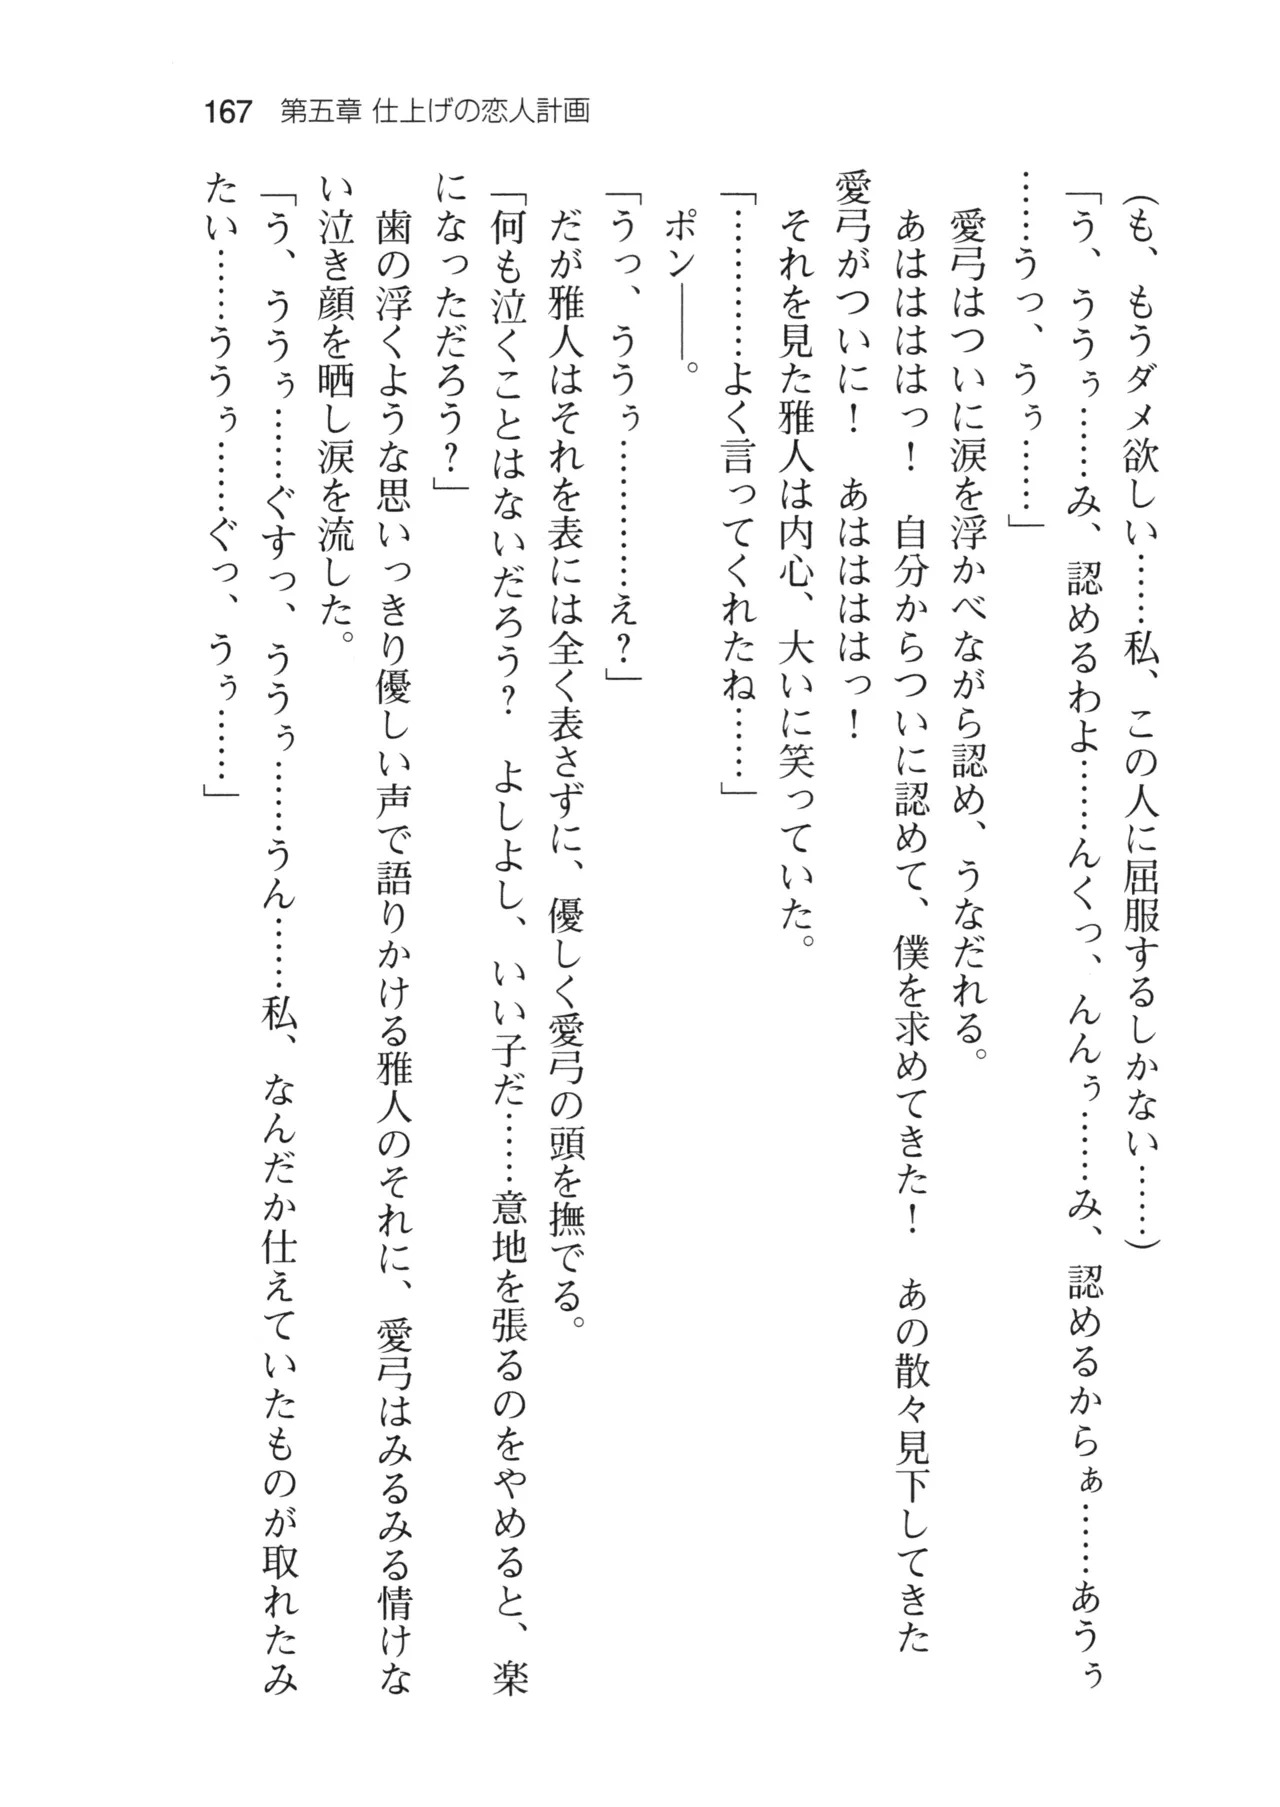 167 第五章 仕上げの恋人計画
(も、もうダメ欲しい……私、この人に屈服するしかない……)
「う、ううぅ……み、認めるわよ……んくっ、んんぅ……み、認めるからぁ……あうぅ
……うっ、うぅ……」
　愛弓はついに涙を浮かべながら認め、うなだれる。
　あはははっ！　自分からついに認めて、僕を求めてきた！　あの散々見下してきた
愛弓がついに！　あはははっ！
　それを見た雅人は内心、大いに笑っていた。
「…………よく言ってくれたね……」
　ポン――。
「うっ、ううぅ…………え？」
　だが雅人はそれを表には全く表さずに、優しく愛弓の頭を撫でる。
「何も泣くことはないだろう？　よしよし、いい子だ……意地を張るのをやめると、楽
になっただろう？」
　歯の浮くような思いっきり優しい声で語りかける雅人のそれに、愛弓はみるみる情けな
い泣き顔を晒し涙を流した。
「う、ううぅ……ぐすっ、ううぅ……うん……私、なんだか仕えていたものが取れたみ
たい……ううぅ……ぐっ、うぅ……」